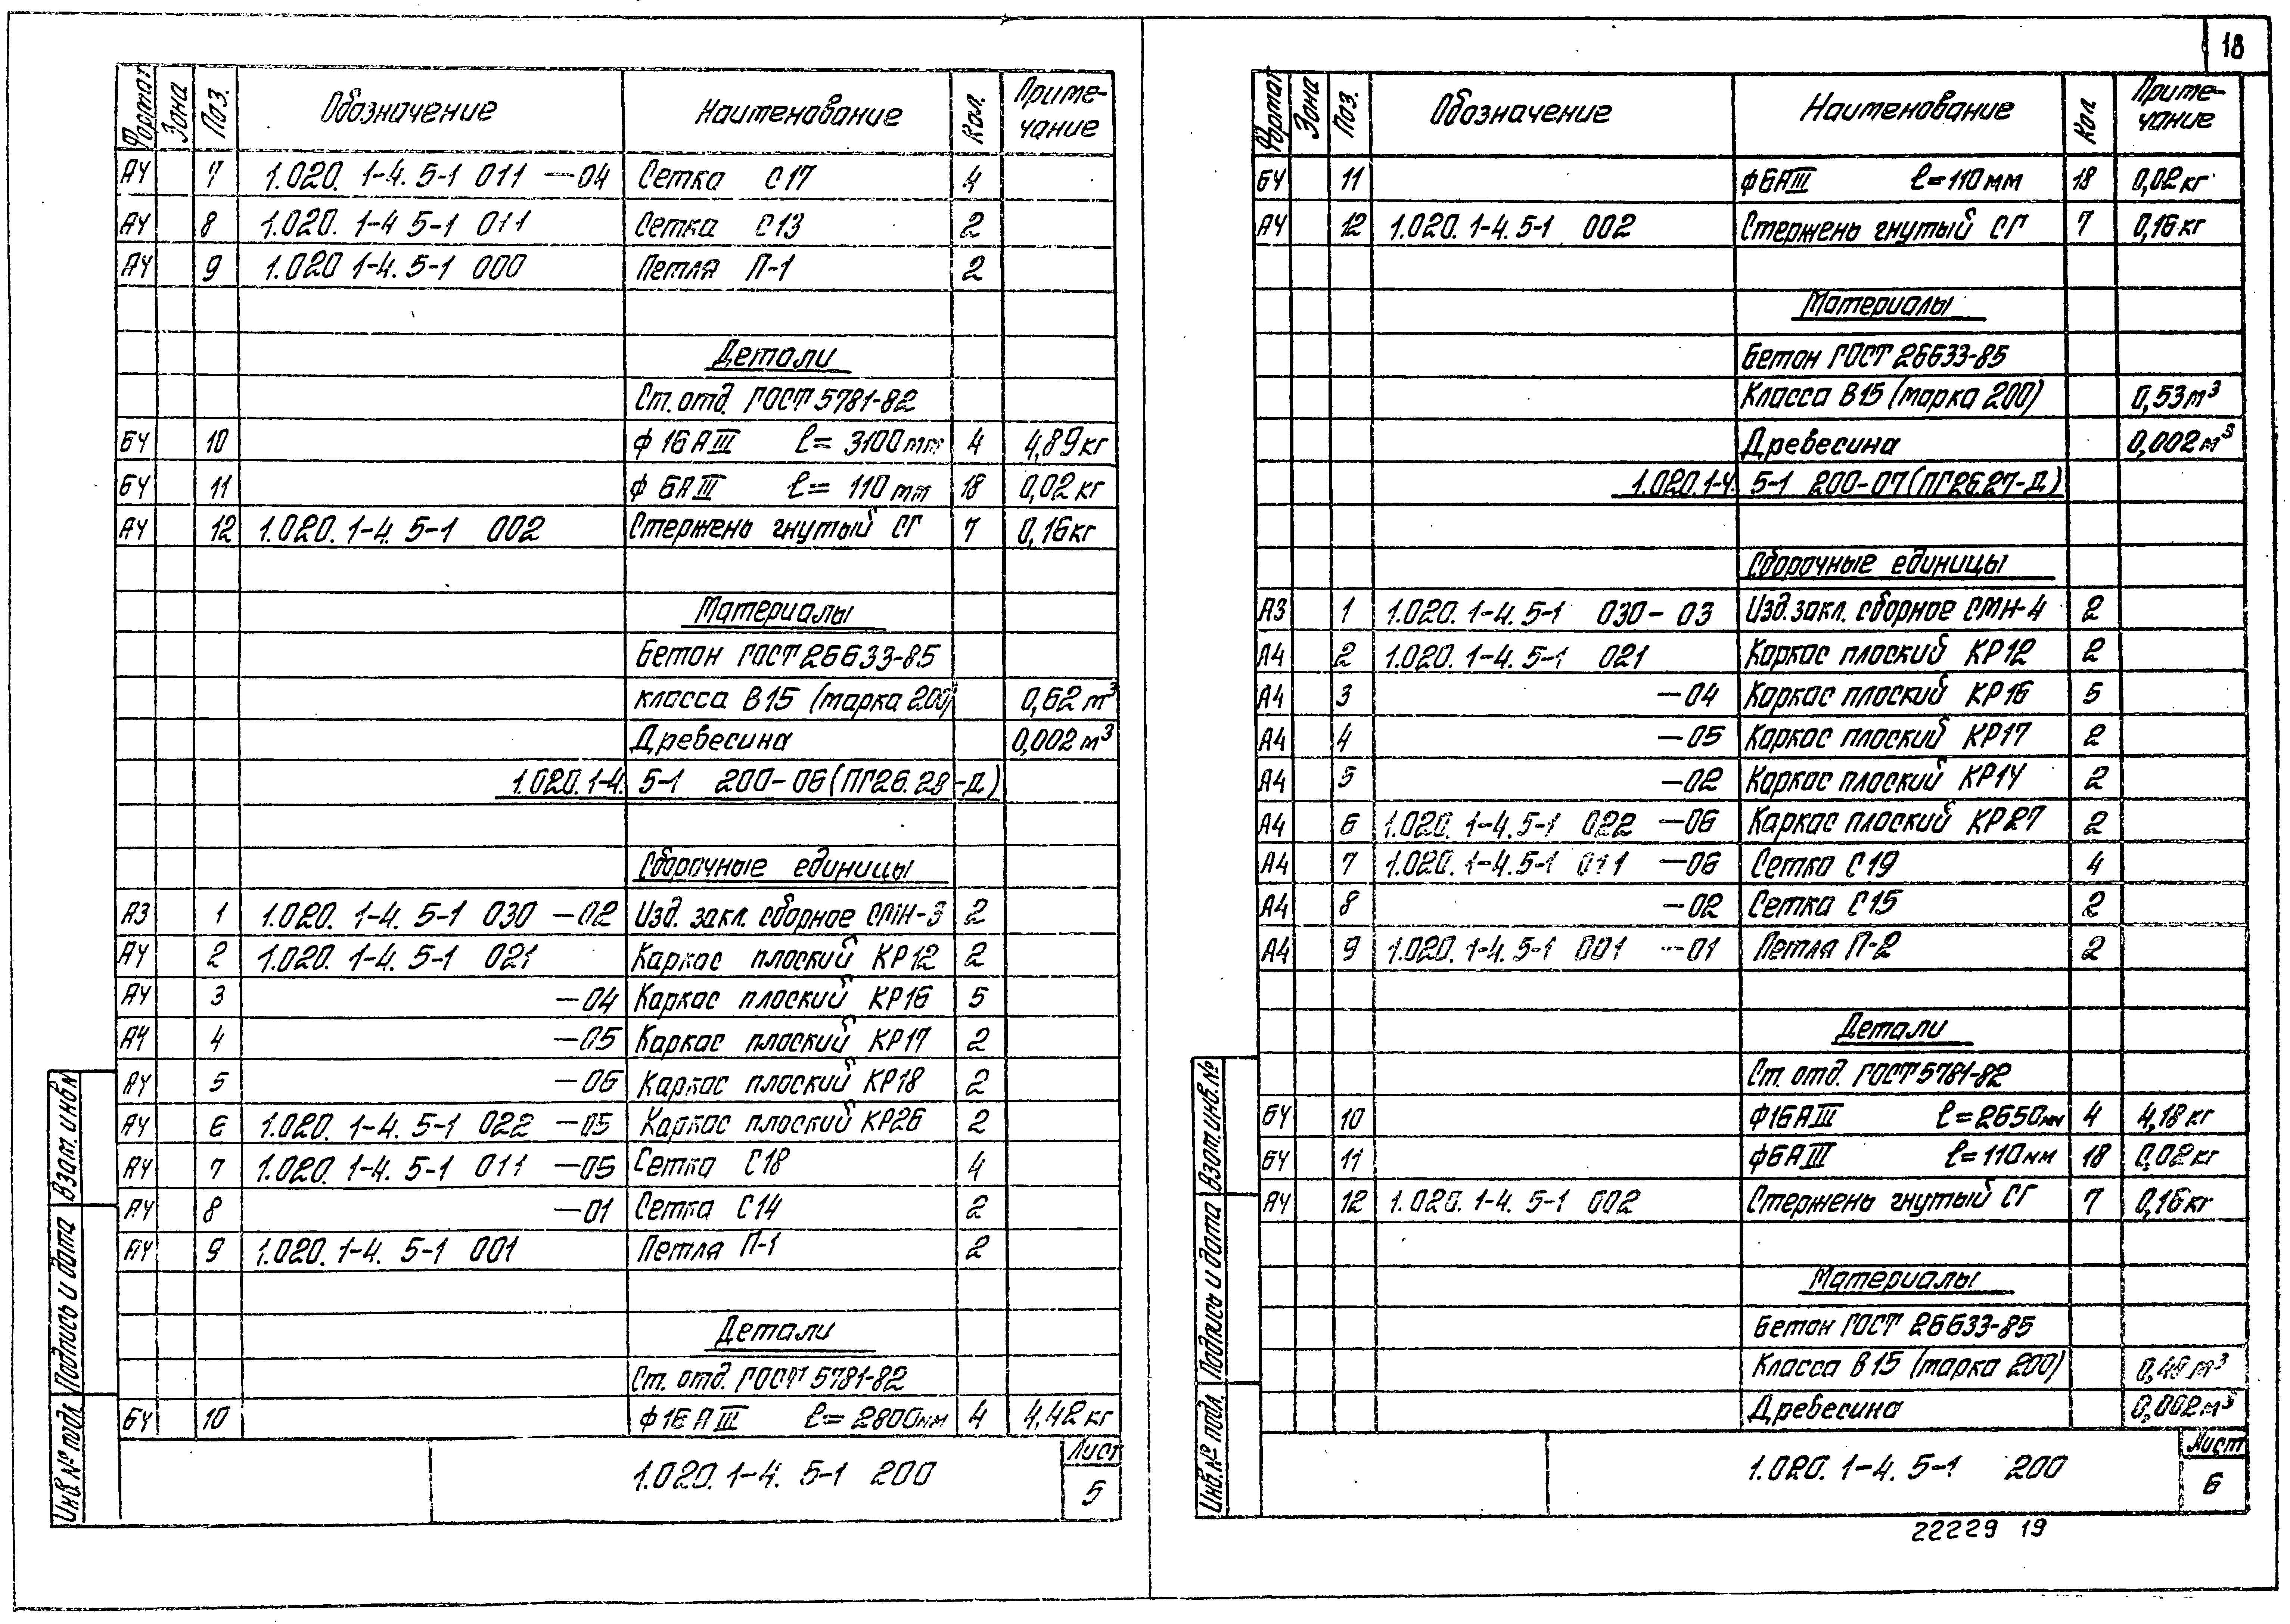 18
Формат Зона Поз. Обозначение Наименование Кол. Приме-
чание
А4 7 1.020. 1-4. 5-1 011 -04 Сетка С17 4
А4 8 1.020. 1-4 5-1 011 Сетка С13 2
А4 9 1.020 1-4. 5-1 000 Петля П-1 2
Детали
Ст. отд. ГОСТ 5781-82
БЧ 10 ф 16 А III ℓ= 3100 мм 4 4,89 кг
БЧ 11 ф 6А III ℓ= 110 мм 18 0,02 кг
А4 12 1.020. 1-4. 5-1 002 Стержень гнутый СГ 7 0,16 кг
Материалы
Бетон ГОСТ 26633-85
класса В15 (марка 200) 0,62 м³
Древесина 0,002 м³
1.020. 1-4. 5-1 200-06 (ПГ26.28-Д)
Сборочные единицы
А3 1 1.020. 1-4. 5-1 030 -02 Изд. закл. сборное СМН-3 2
А4 2 1.020. 1-4. 5-1 021 Каркас плоский КР12 2
А4 3 -04 Каркас плоский КР16 5
А4 4 -05 Каркас плоский КР17 2
А4 5 -06 Каркас плоский КР18 2
А4 6 1.020. 1-4. 5-1 022 -05 Каркас плоский КР26 2
А4 7 1.020. 1-4. 5-1 011 -05 Сетка С18 4
А4 8 -01 Сетка С14 2
А4 9 1.020. 1-4. 5-1 001 Петля П-1 2
Детали
Ст. отд. ГОСТ 5781-82
БЧ 10 ф 16 А III ℓ= 2800 мм 4 4,42 кг
1.020. 1-4. 5-1 200
Лист
5
Взам. инв. №
Подпись и дата
Инв. № подл.
Формат Зона Поз. Обозначение Наименование Кол. Приме-
чание
БЧ 11 ф 6А III ℓ=110 мм 18 0,02 кг
А4 12 1.020. 1-4. 5-1 002 Стержень гнутый СГ 7 0,16 кг
Материалы
Бетон ГОСТ 26633-85
Класса В15 (марка 200) 0,53 м³
Древесина 0,002 м³
1.020. 1-4. 5-1 200-07 (ПГ26.27-Д)
Сборочные единицы
А3 1 1.020. 1-4. 5-1 030-03 Изд. закл. сборное СМН-4 2
А4 2 1.020. 1-4. 5-1 021 Каркас плоский КР12 2
А4 3 -04 Каркас плоский КР16 5
А4 4 -05 Каркас плоский КР17 2
А4 5 -02 Каркас плоский КР14 2
А4 6 1.020. 1-4. 5-1 022 -06 Каркас плоский КР27 2
А4 7 1.020. 1-4. 5-1 011 -06 Сетка С19 4
А4 8 -02 Сетка С15 2
А4 9 1.020. 1-4. 5-1 001 -01 Петля П-2 2
Детали
Ст. отд. ГОСТ 5781-82
БЧ 10 ф 16 А III ℓ=2650 мм 4 4,18 кг
БЧ 11 ф 6 А III ℓ=110 мм 18 0,02 кг
А4 12 1.020. 1-4. 5-1 002 Стержень гнутый СГ 7 0,16 кг
Материалы
Бетон ГОСТ 26633-85
Класса В15 (марка 200) 0,48 м³
Древесина 0,002 м³
1.020. 1-4. 5-1 200
Лист
6
Взам. инв. №
Подпись и дата
Инв. № подл.
22229 19